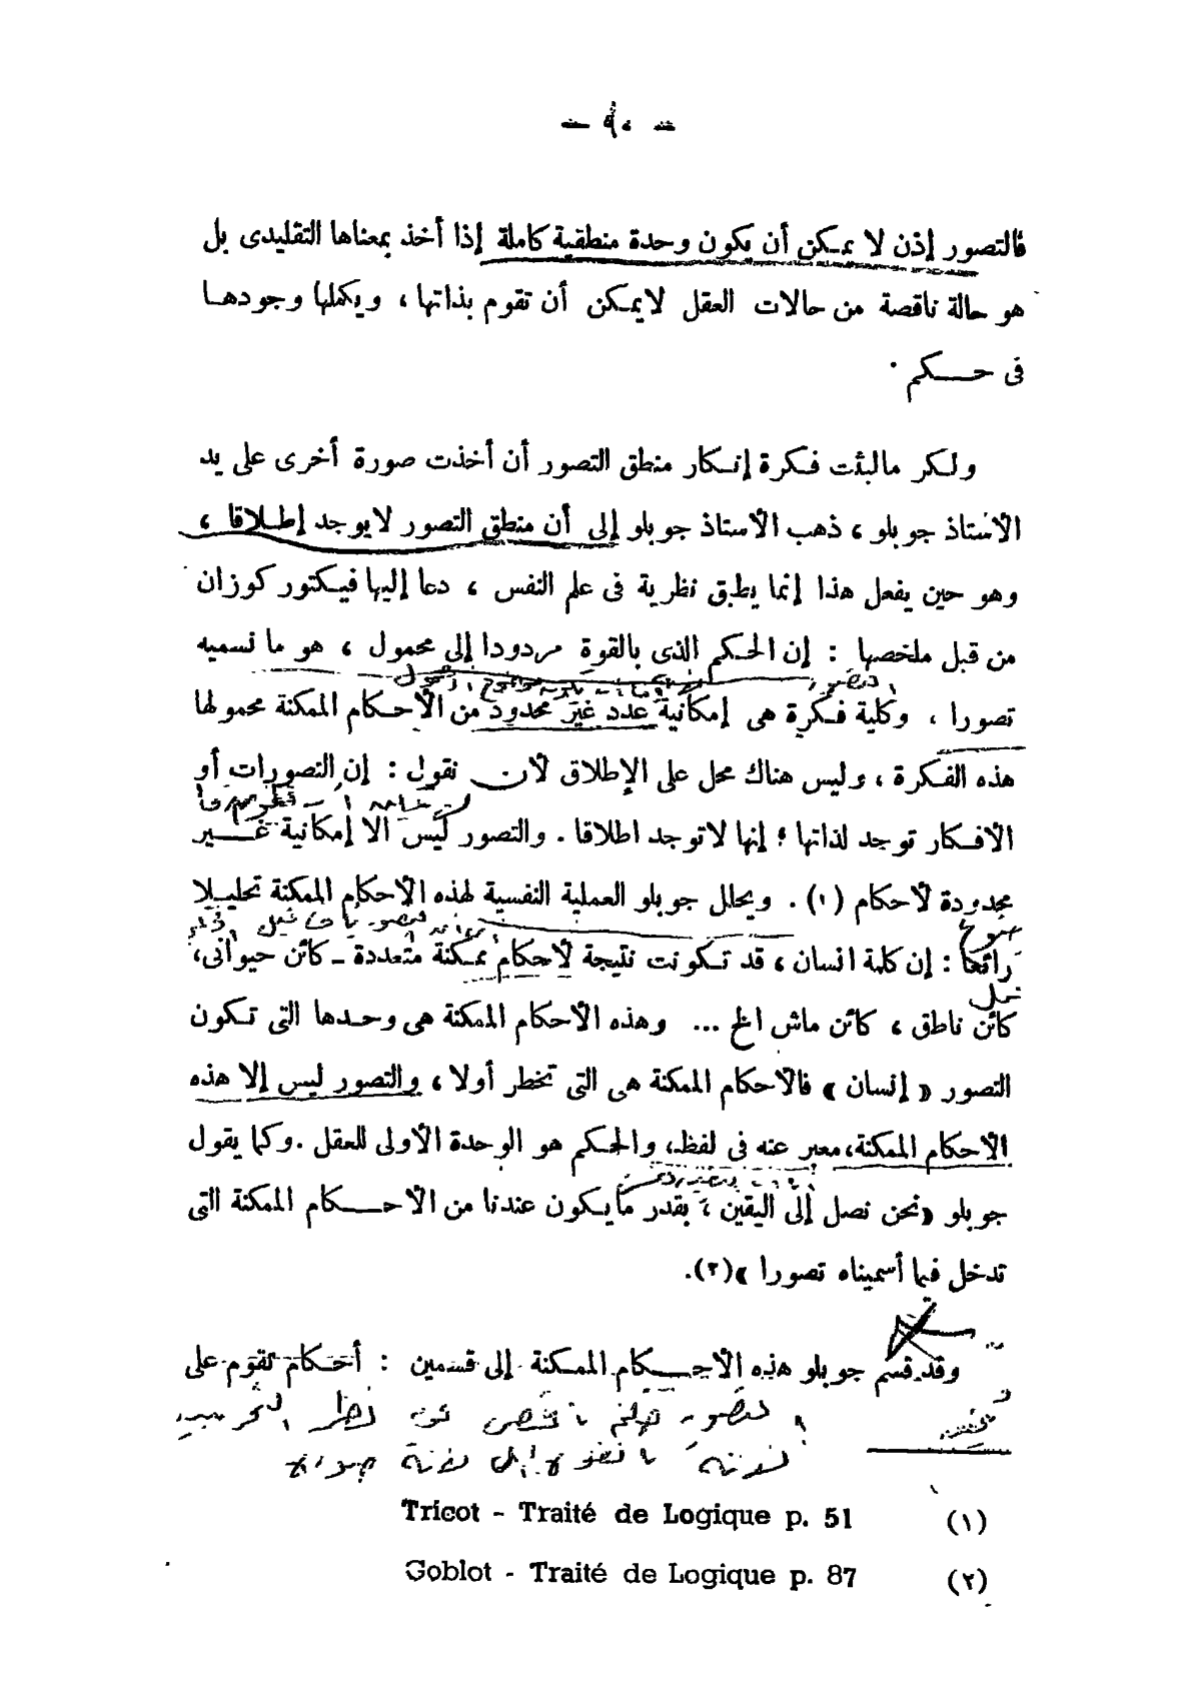 — ٩٠ —
فالتصور إذن لا يمكن أن يكون وحدة منطقية كاملة إذا أخذ بمعناها التقليدى بل
هو حالة ناقصة من حالات العقل لايمكن أن تقوم بذاتها ، ويكملها وجودها
فى حكم .
ولكن مالبثت فكرة إنكار منطق التصور أن أخذت صورة أخرى على يد
الأستاذ جوبلو ، ذهب الأستاذ جوبلو إلى أن منطق التصور لايوجد إطلاقا ،
وهو حين يفعل هذا إنما يطبق نظرية فى علم النفس ، دعا إليها فيكتور كوزان
من قبل ملخصها : إن الحكم الذى بالقوة مردودا إلى محمول ، هو ما نسميه
تصورا ، وكلية فكرة هى إمكانية عدد غير محدود من الأحكام الممكنة محمولها
هذه الفكرة ، وليس هناك محل على الإطلاق لأن نقول : إن التصورات أو
الأفكار توجد لذاتها ؛ إنها لاتوجد اطلاقا . والتصور ليس الا إمكانية غير
محدودة لأحكام (١) . ويحلل جوبلو العملية النفسية لهذه الأحكام الممكنة تحليلا
رائعا : إن كلمة انسان ، قد تكونت نتيجة لأحكام ممكنة متعددة ــ كائن حيوانى،
كائن ناطق ، كائن ماش الخ ... وهذه الأحكام الممكنة هى وحدها التى تكون
التصور « إنسان » فالأحكام الممكنة هى التى تخطر أولا ، والتصور ليس إلا هذه
الأحكام الممكنة، معبر عنه فى لفظ، والحكم هو الوحدة الأولى للعقل . وكما يقول
جوبلو «نحن نصل إلى اليقين ، بقدر مايكون عندنا من الأحكام الممكنة التى
تدخل فيما أسميناه تصورا »(٢).
وقد قسم جوبلو هذه الأحكام الممكنة إلى قسمين : أحكام تقوم على
(١) Tricot - Traité de Logique p. 51
(٢) Goblot - Traité de Logique p. 87